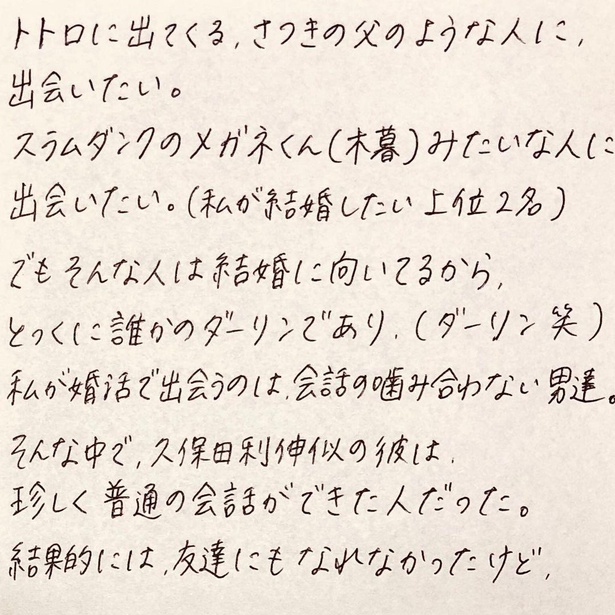 トトロに出てくる、さつきの父のような人に、
出会いたい。
スラムダンクのメガネくん(木暮)みたいな人に
出会いたい。(私が結婚したい上位2名)
でもそんな人は結婚に向いてるから、
とっくに誰かのダーリンであり、(ダーリン笑)
私が婚活で出会うのは、会話の噛み合わない男達。
そんな中で、久保田利伸似の彼は、
珍しく普通の会話ができた人だった。
結果的には、友達にもなれなかったけど、